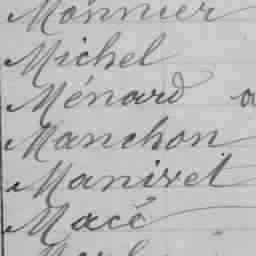 Monnier
Michel
Ménard
Manchon
Manivel
Macé